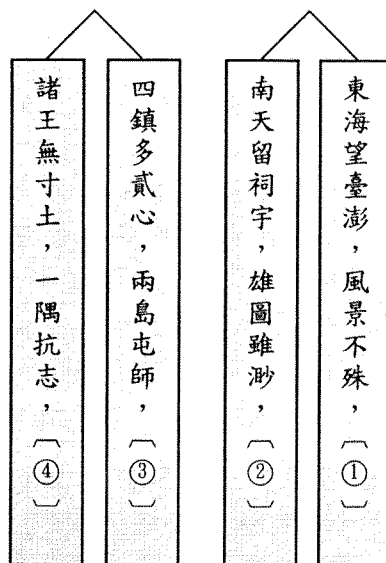 東海望臺澎，風景不殊，〔①〕
南天留祠宇，雄圖雖渺，〔②〕
四鎮多貳心，兩島屯師，〔③〕
諸王無寸土，一隅抗志，〔④〕